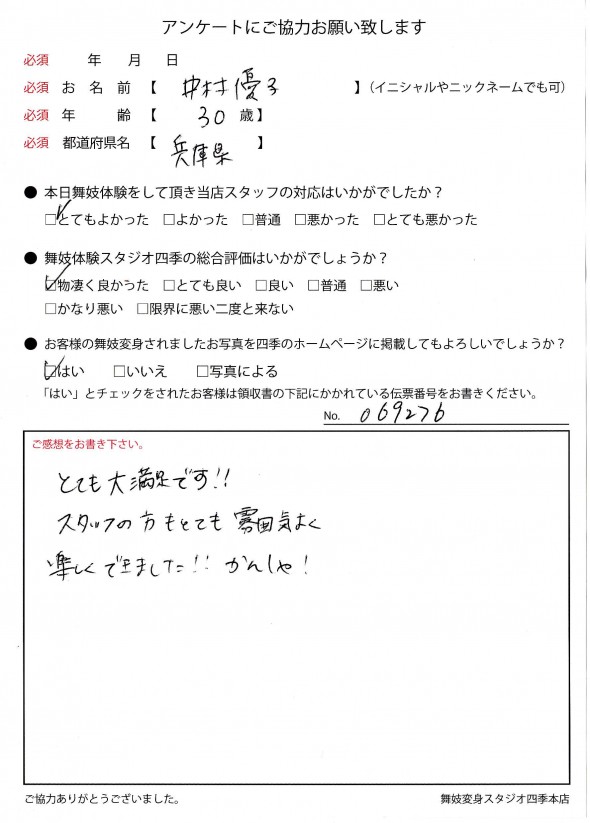 アンケートにご協力お願い致します
必須 年 月 日
必須 お 名 前 【 中村優子 】（イニシャルやニックネームでも可）
必須 年 齢 【 30 歳】
必須 都道府県名 【 兵庫県 】
● 本日舞妓体験をして頂き当店スタッフの対応はいかがでしたか？
☑とてもよかった □よかった □普通 □悪かった □とても悪かった
● 舞妓体験スタジオ四季の総合評価はいかがでしょうか？
☑物凄く良かった □とても良い □良い □普通 □悪い
□かなり悪い □限界に悪い二度と来ない
● お客様の舞妓変身されましたお写真を四季のホームページに掲載してもよろしいでしょうか？
☑はい □いいえ □写真による
「はい」とチェックをされたお客様は領収書の下記にかかれている伝票番号をお書きください。
No. 069276
ご感想をお書き下さい。
とても大満足です!!
スタッフの方もとても雰囲気よく
楽しくできました!! かんしゃ!
ご協力ありがとうございました。 舞妓変身スタジオ四季本店